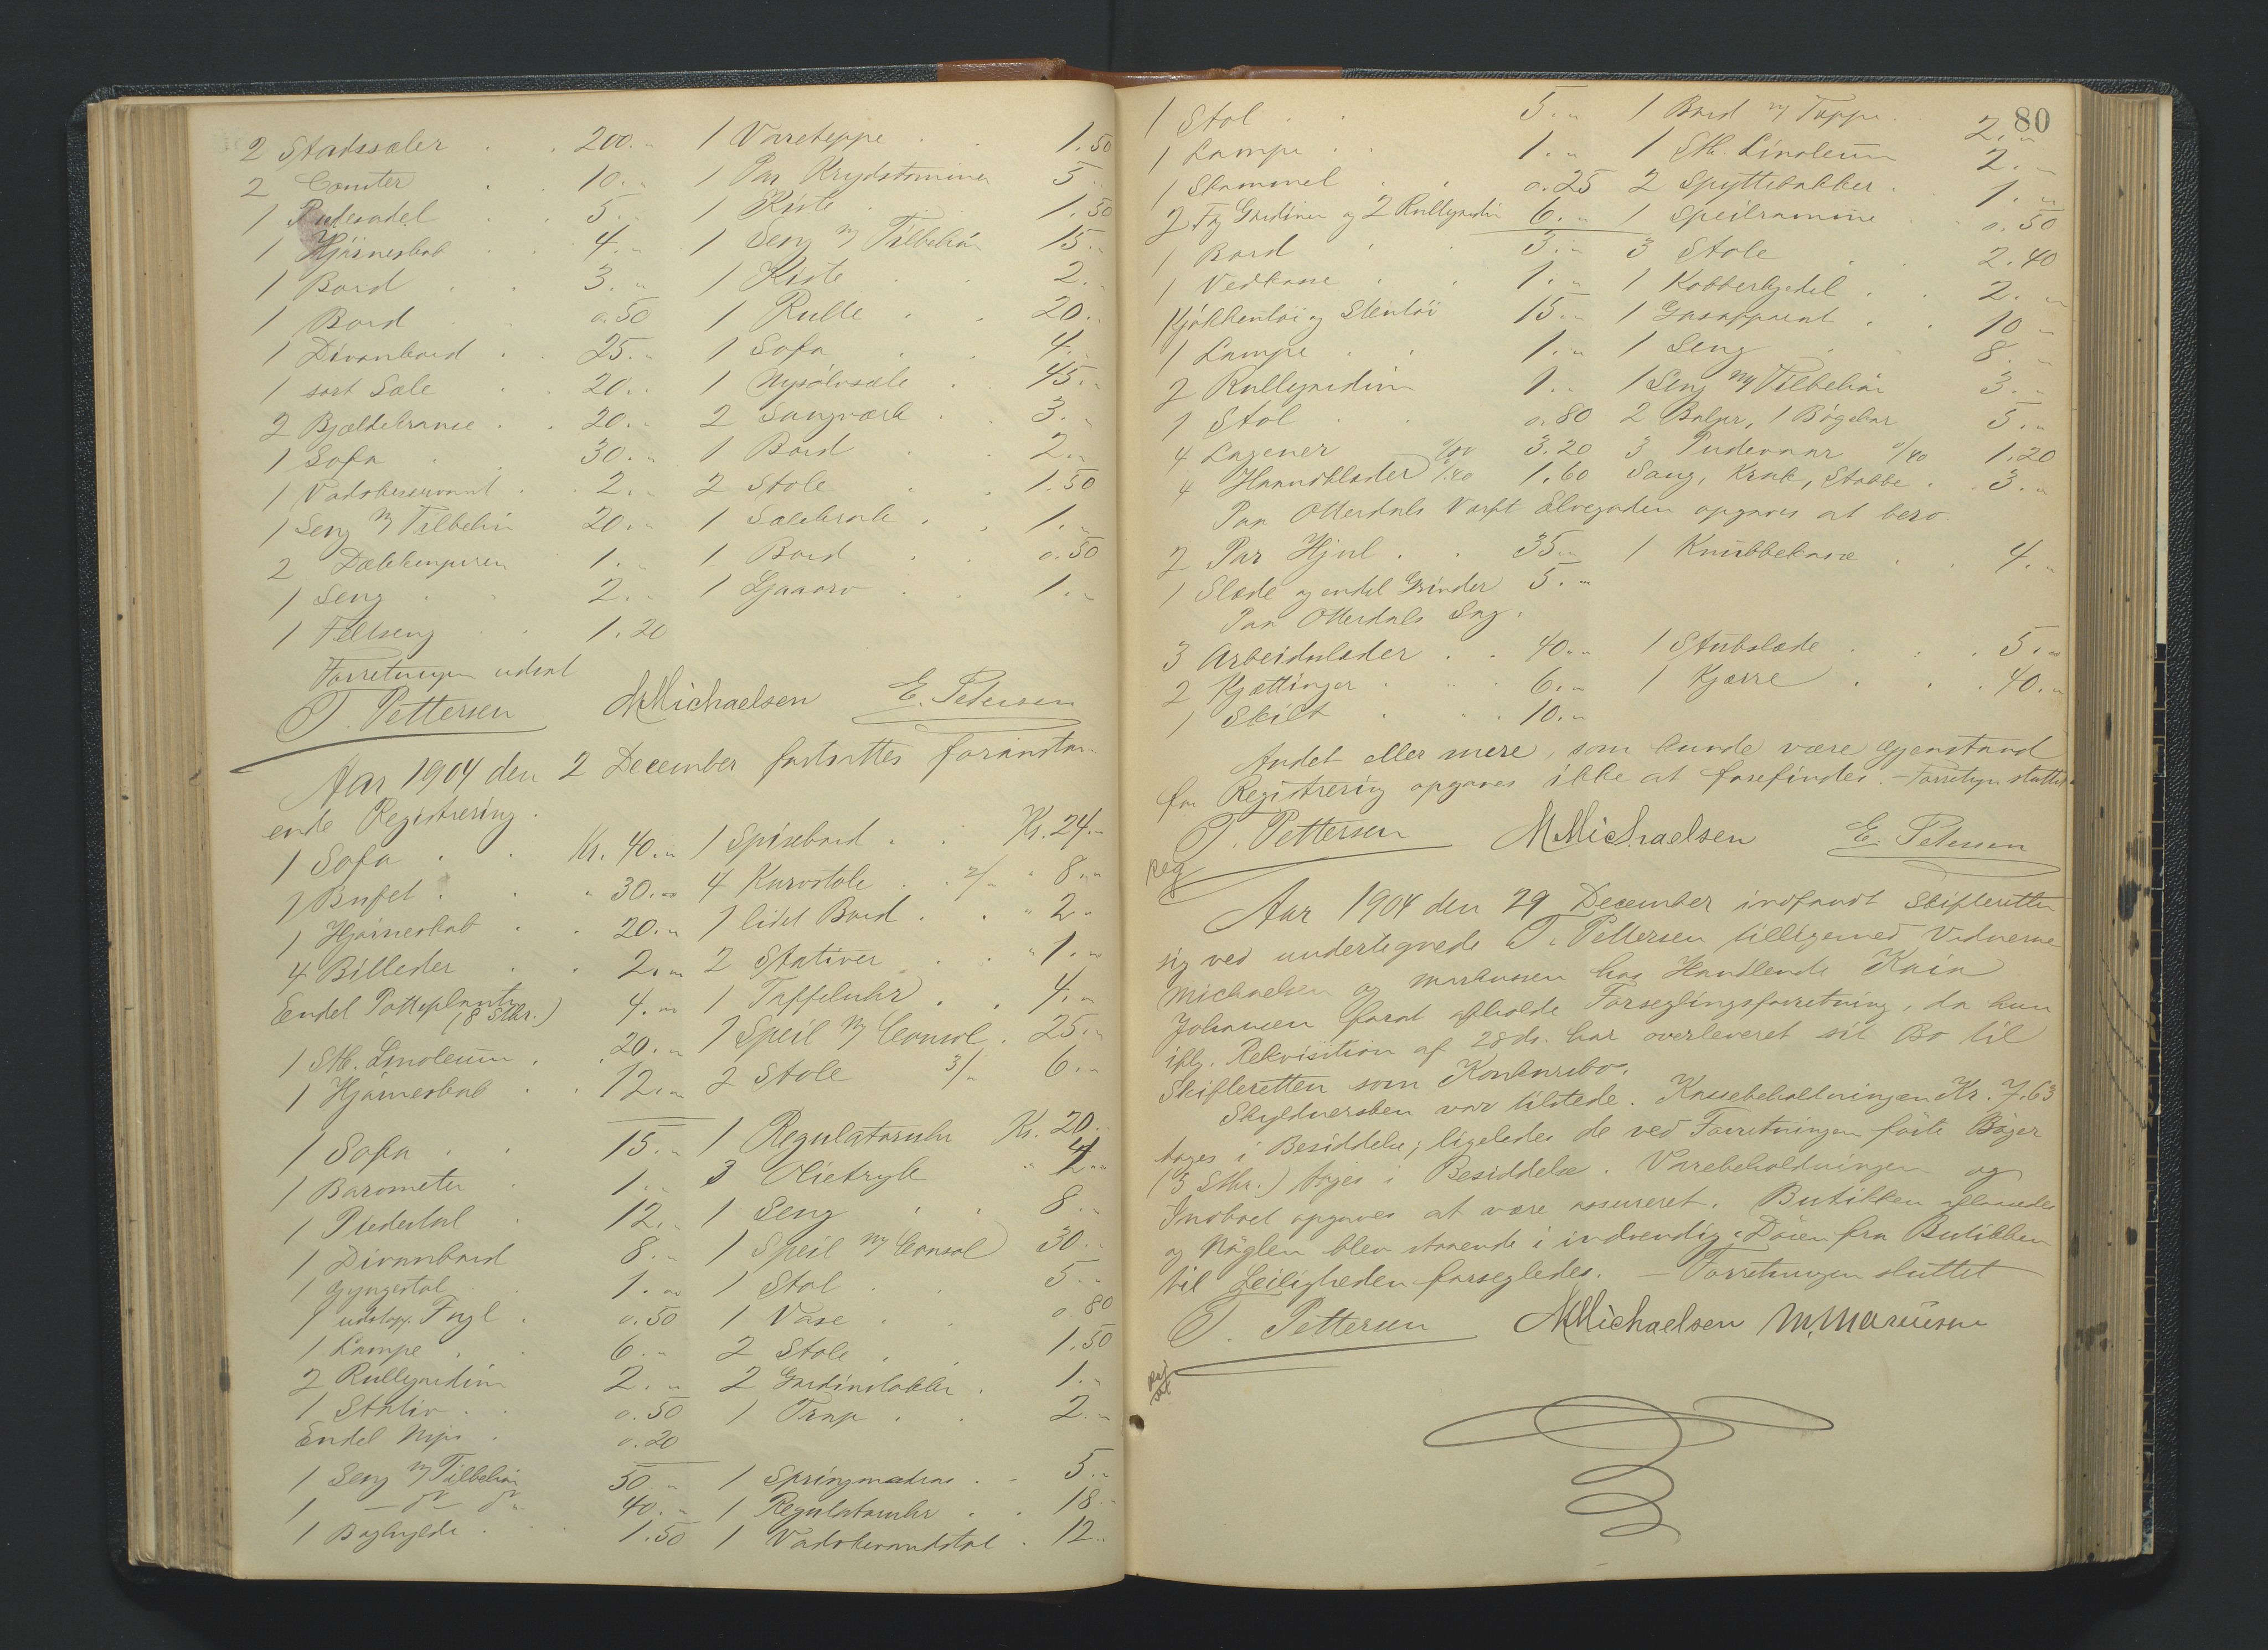 2 Stadssæler . . 200.„ 1 Vareteppe . . 1.50
2 Comter . . 10.„ 1 Par Krydstømmer 5.„
1 Ridesadel . . 5.„ 1 Kiste . . 1.50
1 Hjørneskab . . 4.„ 1 Seng m/ Tilbehør 15.„
1 Bord . . 3.„ 1 Kiste . . 2.„
1 Bord . . 0.50 1 Rulle . . 20.„
1 Divanbord . . 25.„ 1 Sofa . . 4.„
1 sort Sæle . . 20.„ 1 Nysølvsæle . 45.„
2 Bjældekranse . . 20.„ 2 Saugværk . 3.„
1 Sofa . . 30.„ 1 Bord . . 2.„
1 Vadskeservant . . 2.„ 2 Stole . . 1.50
1 Seng m/ Tilbehør 20.„ 1 Sælekrak . . 1.„
2 Dækkenguren 1.„ 1 Bord . . 0.50
1 Seng . . 2.„ 1 Ljaaorv . . 1.„
1 Feltseng . . 1.20
Forretningen udsat
T. Pettersen MMichaelsen E. Petersen
Aar 1904 den 2 December fortsattes foranstaa-
ende Registrering.
1 Sofa . . Kr. 40.„ 1 Spisebord . . Kr. 24.„
1 Bufet . . „ 30.„ 4 Kurvstole . . 2/„ „ 8.„
1 Hjørneskab . . 20.„ 1 lidet Bord . . „ 2.„
4 Billeder . . 2.„ 2 Stativer . . „ 1.„
Endel Potteplanter (8 Stkr.) 4.„ 1 Taffeluhr . . 4.„
1 Stk. Linoleum . . 20.„ 1 Speil m/ Consol . 25.„
1 Hjørneskab . . 12.„ 2 Stole 3/„ 6.„
1 Sofa . . 15.„ 1 Regulatoruhr Kr. 20.„
1 Barometer . 1.„ 3 Olietryk „ 4.„
1 Piedestal . 12.„ 1 Seng . . 8.„
1 Divanbord 8.„ 1 Speil m/ Consol 30.„
1 Gyngestol . . 1.„ 1 Stol . . 5.„
1 udstop. Fugl . 0.50 1 Vase . . 0.80
1 Lampe . . 6.„ 2 Stole . . 1.50
2 Rullgardin 2.„ 2 Gardinstokke . 1.„
1 Stativ . . 0.50 1 Trap . . 2.„
Endel Nips . 0.20
1 Seng m/ Tilbehør 50.„ 1 Springmadras . . 5.„
1 — do — do 40.„ 1 Regulatoruhr . . 18.„
1 Boghylde . . 1.50 1 Vadskevandstol . 12.„
80
1 Stol . . 5.„ 1 Bord m/ Teppe . 2.„
1 Lampe . . 1.„ 1 Stk. Linoleum 2.„
1 Skammel . . 0.25 2 Spyttebakker . 1.„
2 Fag Gardiner og 2 Rullgardin 6.„ 1 Speilramme . 0.50
1 Bord . . 3.„ 3 Stole . . 2.40
1 Vedkasse . . 1.„ 1 Kobberkjedel . . 2.„
Kjøkkentøi og Stentøi 15.„ 1 Gasapparat . . 10.„
1 Lampe . . 1.„ 1 Seng . . 8.„
2 Rullgardin 1.„ 1 Seng m/ Tilbehør 3.„
1 Stol . . 0.80 2 Baljer, 1 Bøgekar 5.„
4 Lagener 0/80 3.20 3 Pudevaar 0/40 1.20
4 Haandklæder /.40 1.60 Saug, Krak, Stabbe . . 3.„
Paa Otterdals Værft Elvegaden opgaves at bero
2 Par Hjul . . 35.„ 1 Knubbekasse . . 4.„
1 Slæde og endel Grinder 5.„
Paa Otterdals Sag.
3 Arbeidslæder . . 40.„ 1 Stubslæde . . 5.„
2 Kjættinger . . 6.„ 1 Kjærre . . 40.„
1 Skilt . . 10.„
Andet eller mere, som kunde være Gjenstand
for Registrering opgaves ikke at forefindes. — Forretngn sluttet.
T. Pettersen MMichaelsen E. Petersen
Reg
Aar 1904 den 29 December indfandt Skifteretten
sig ved undertegnede T. Pettersen tilligemed Vidnerne
Michaelsen og Markussen hos Handlende Kaia
Johansen forat afholde Forseglingsforretning, da hun
ifølg. Rekvisition af 28 ds. har overleveret sit Bo til
Skifteretten som Konkursbo.
Skyldnersken var tilstede. Kassebeholdningen Kr. 7.63
toges i Besiddelse; ligeledes de ved Forretningen førte Bøger
(3 Stkr.) toges i Besiddelse. Varebeholdningen og
Indboet opgaves at være assureret. Butikken aflaasedes
og Nøglen blev staaende i indvendig; Døren fra Butikken
til Leiligheden forsegledes. — Forretningen sluttet
T. Pettersen MMichaelsen M. Markussen